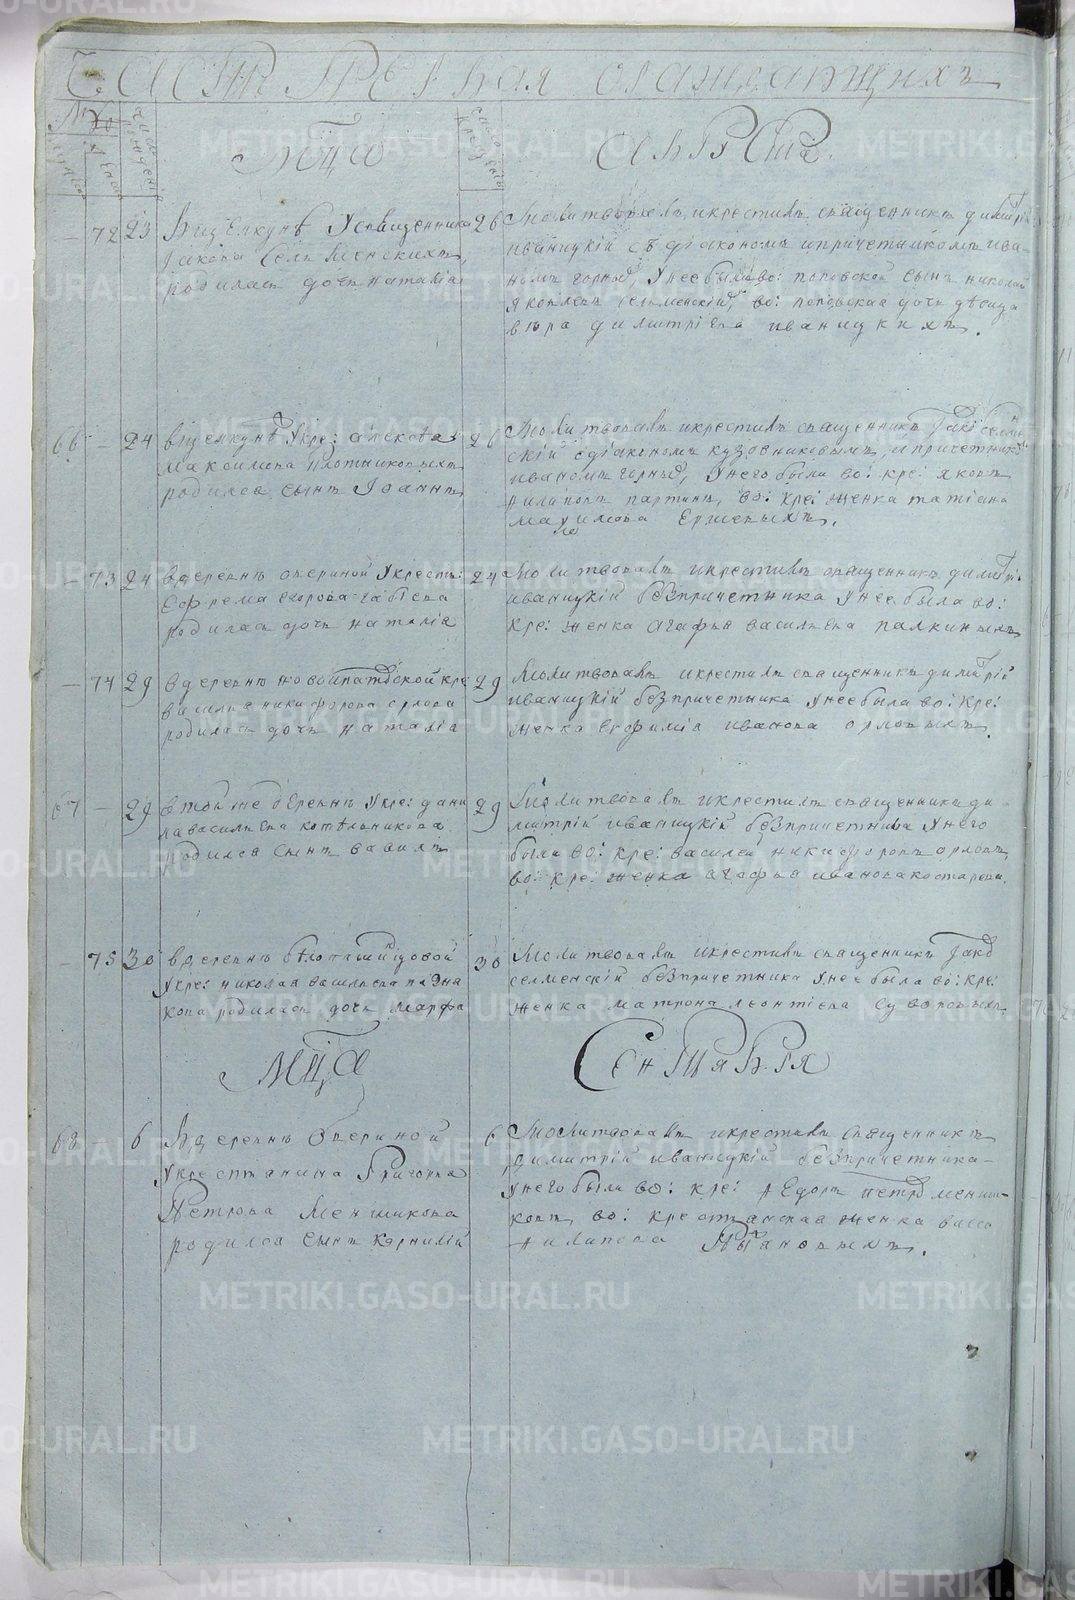 МЦА
АВГУСТА
72 23 Визелкунѣ Усвященника
Іакова Селменскихъ,
родилась дочь наталіа
26 Молитвовалъ икрестилъ священникъ димитріи
иваницкій съ діакономъ ипричетникомъ ива-
номъ горныхъ, Унее были во: поповской сынъ николаи
яковлевъ селменскій, во: поповская дочь дѣвица
вѣра димитріева иваницкихъ.
66 24 визелкунѣ Укре: алексѣа
максимова плотниковыхъ
родился сынъ Іоаннъ
26 Молитвовалъ икрестилъ священникъ Іаковъ селмен
скій сдіакономъ кузовниковымъ, ипричетникомъ
иваномъ горныхъ, Унего были во: кре: яковъ
филиповъ партинъ, во: кре: женка татіана
максимова Ершевыхъ.
73 24 вдеревнѣ опериной Укрестья:
Ефрема егорова габова
родилась дочь наталіа
24 Молитвовалъ икрестилъ священникъ димитрі
иваницкій безпричетника Унее была во:
кре: женка агафья василиева палкиныхъ
74 29 вдеревнѣ новоипатовской кре
василиа никифорова орлова
родилась дочь наталіа
29 Молитвовалъ икрестилъ священникъ димитрій
иваницкій безпричетника Унее была во: кре:
женка евфиміа иванова орловыхъ.
67 29 втойже деревнѣ Укре: дани
ла василиева котѣльникова
родился сынъ вавилъ
29 Молитвовалъ икрестилъ священникъ ди-
митрій иваницкій безпричетника Унего
были во: кре: василей никифоровъ орловъ,
во: кре: женка агафья иванова костарева.
75 30 вдеревнѣ
Укре: николаа василиева
кова родилась дочь марфа
30 Молитвовалъ икрестилъ священникъ Іаковъ
селменскій безпричетника Унее была во: кре:
женка матрона леонтіева Суворовыхъ.
МЦА
СЕНТЯБРЯ
68 6 Вдеревнѣ Опериной
Укрестианина Григориа
Петрова Меншикова
родился сынъ Корнилій
6 Молитвовалъ икрестилъ Священникъ
Димитрій иваницкій безпричетника
Унего были во: кре: Ѳедоръ петровъ менши-
ковъ, во: крестианская женка васса
филипова